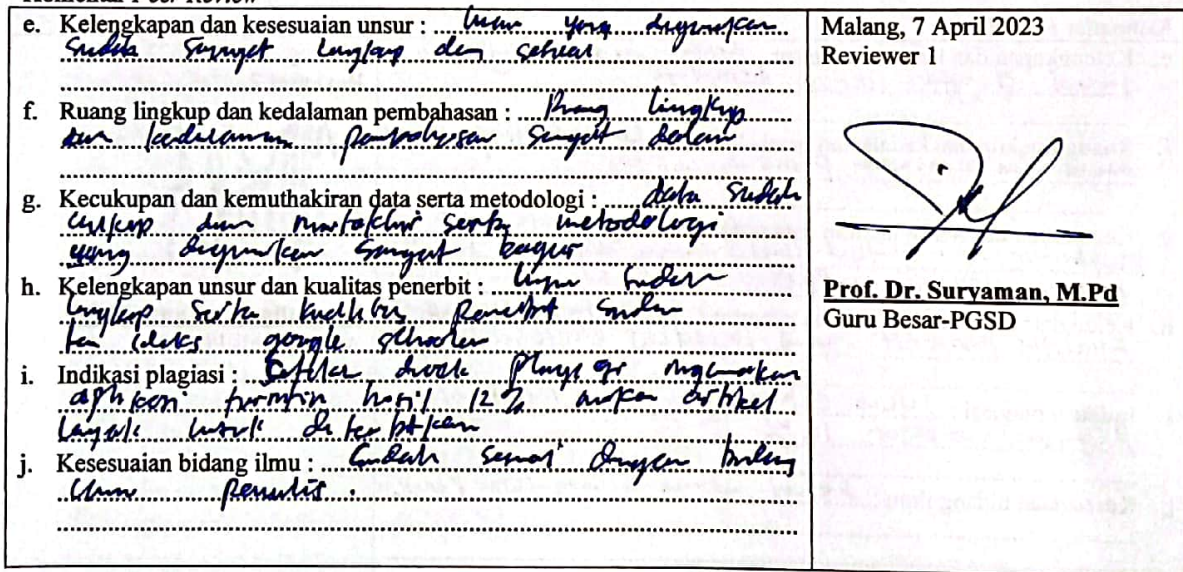 e. Kelengkapan dan kesesuaian unsur : unsur yang digunakan
sudah sangat lengkap dan sesuai
f. Ruang lingkup dan kedalaman pembahasan : Ruang lingkup
dan kedalaman pembahasan sangat dalam
g. Kecukupan dan kemuthakiran data serta metodologi : data sudah
cukup dan mutakhir serta metodologi
yang digunakan sangat bagus
h. Kelengkapan unsur dan kualitas penerbit : unsur sudah
lengkap serta kualitas penerbit sudah
ter indeks google scholar
i. Indikasi plagiasi : Setelah di cek
aplikasi turnitin hasil 12% artikel
layak untuk di terbitkan
j. Kesesuaian bidang ilmu : Sudah sesuai dengan bidang
ilmu penulis.
Malang, 7 April 2023
Reviewer 1
Prof. Dr. Suryaman, M.Pd
Guru Besar-PGSD